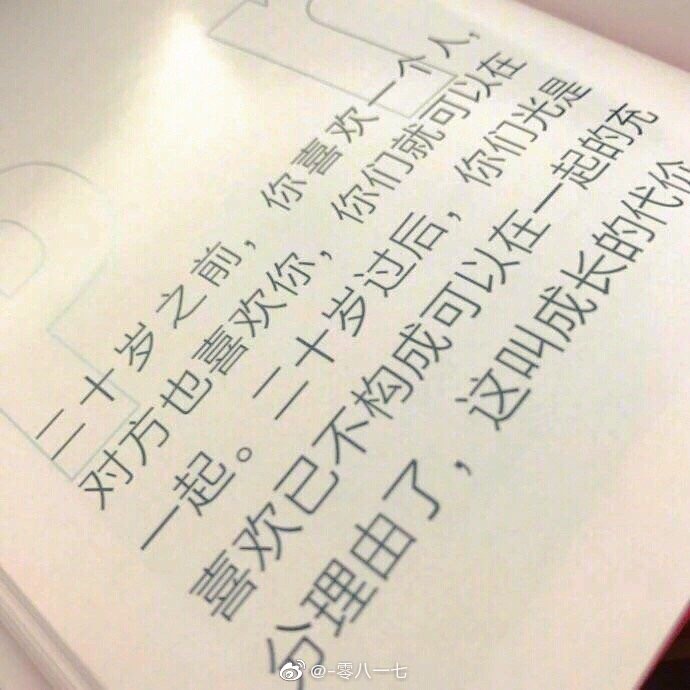 二十岁之前，你喜欢一个人，
对方也喜欢你，你们就可以在
一起。二十岁过后，你们光是
喜欢已不构成可以在一起的充
分理由了，这叫成长的代价
@-零八一七